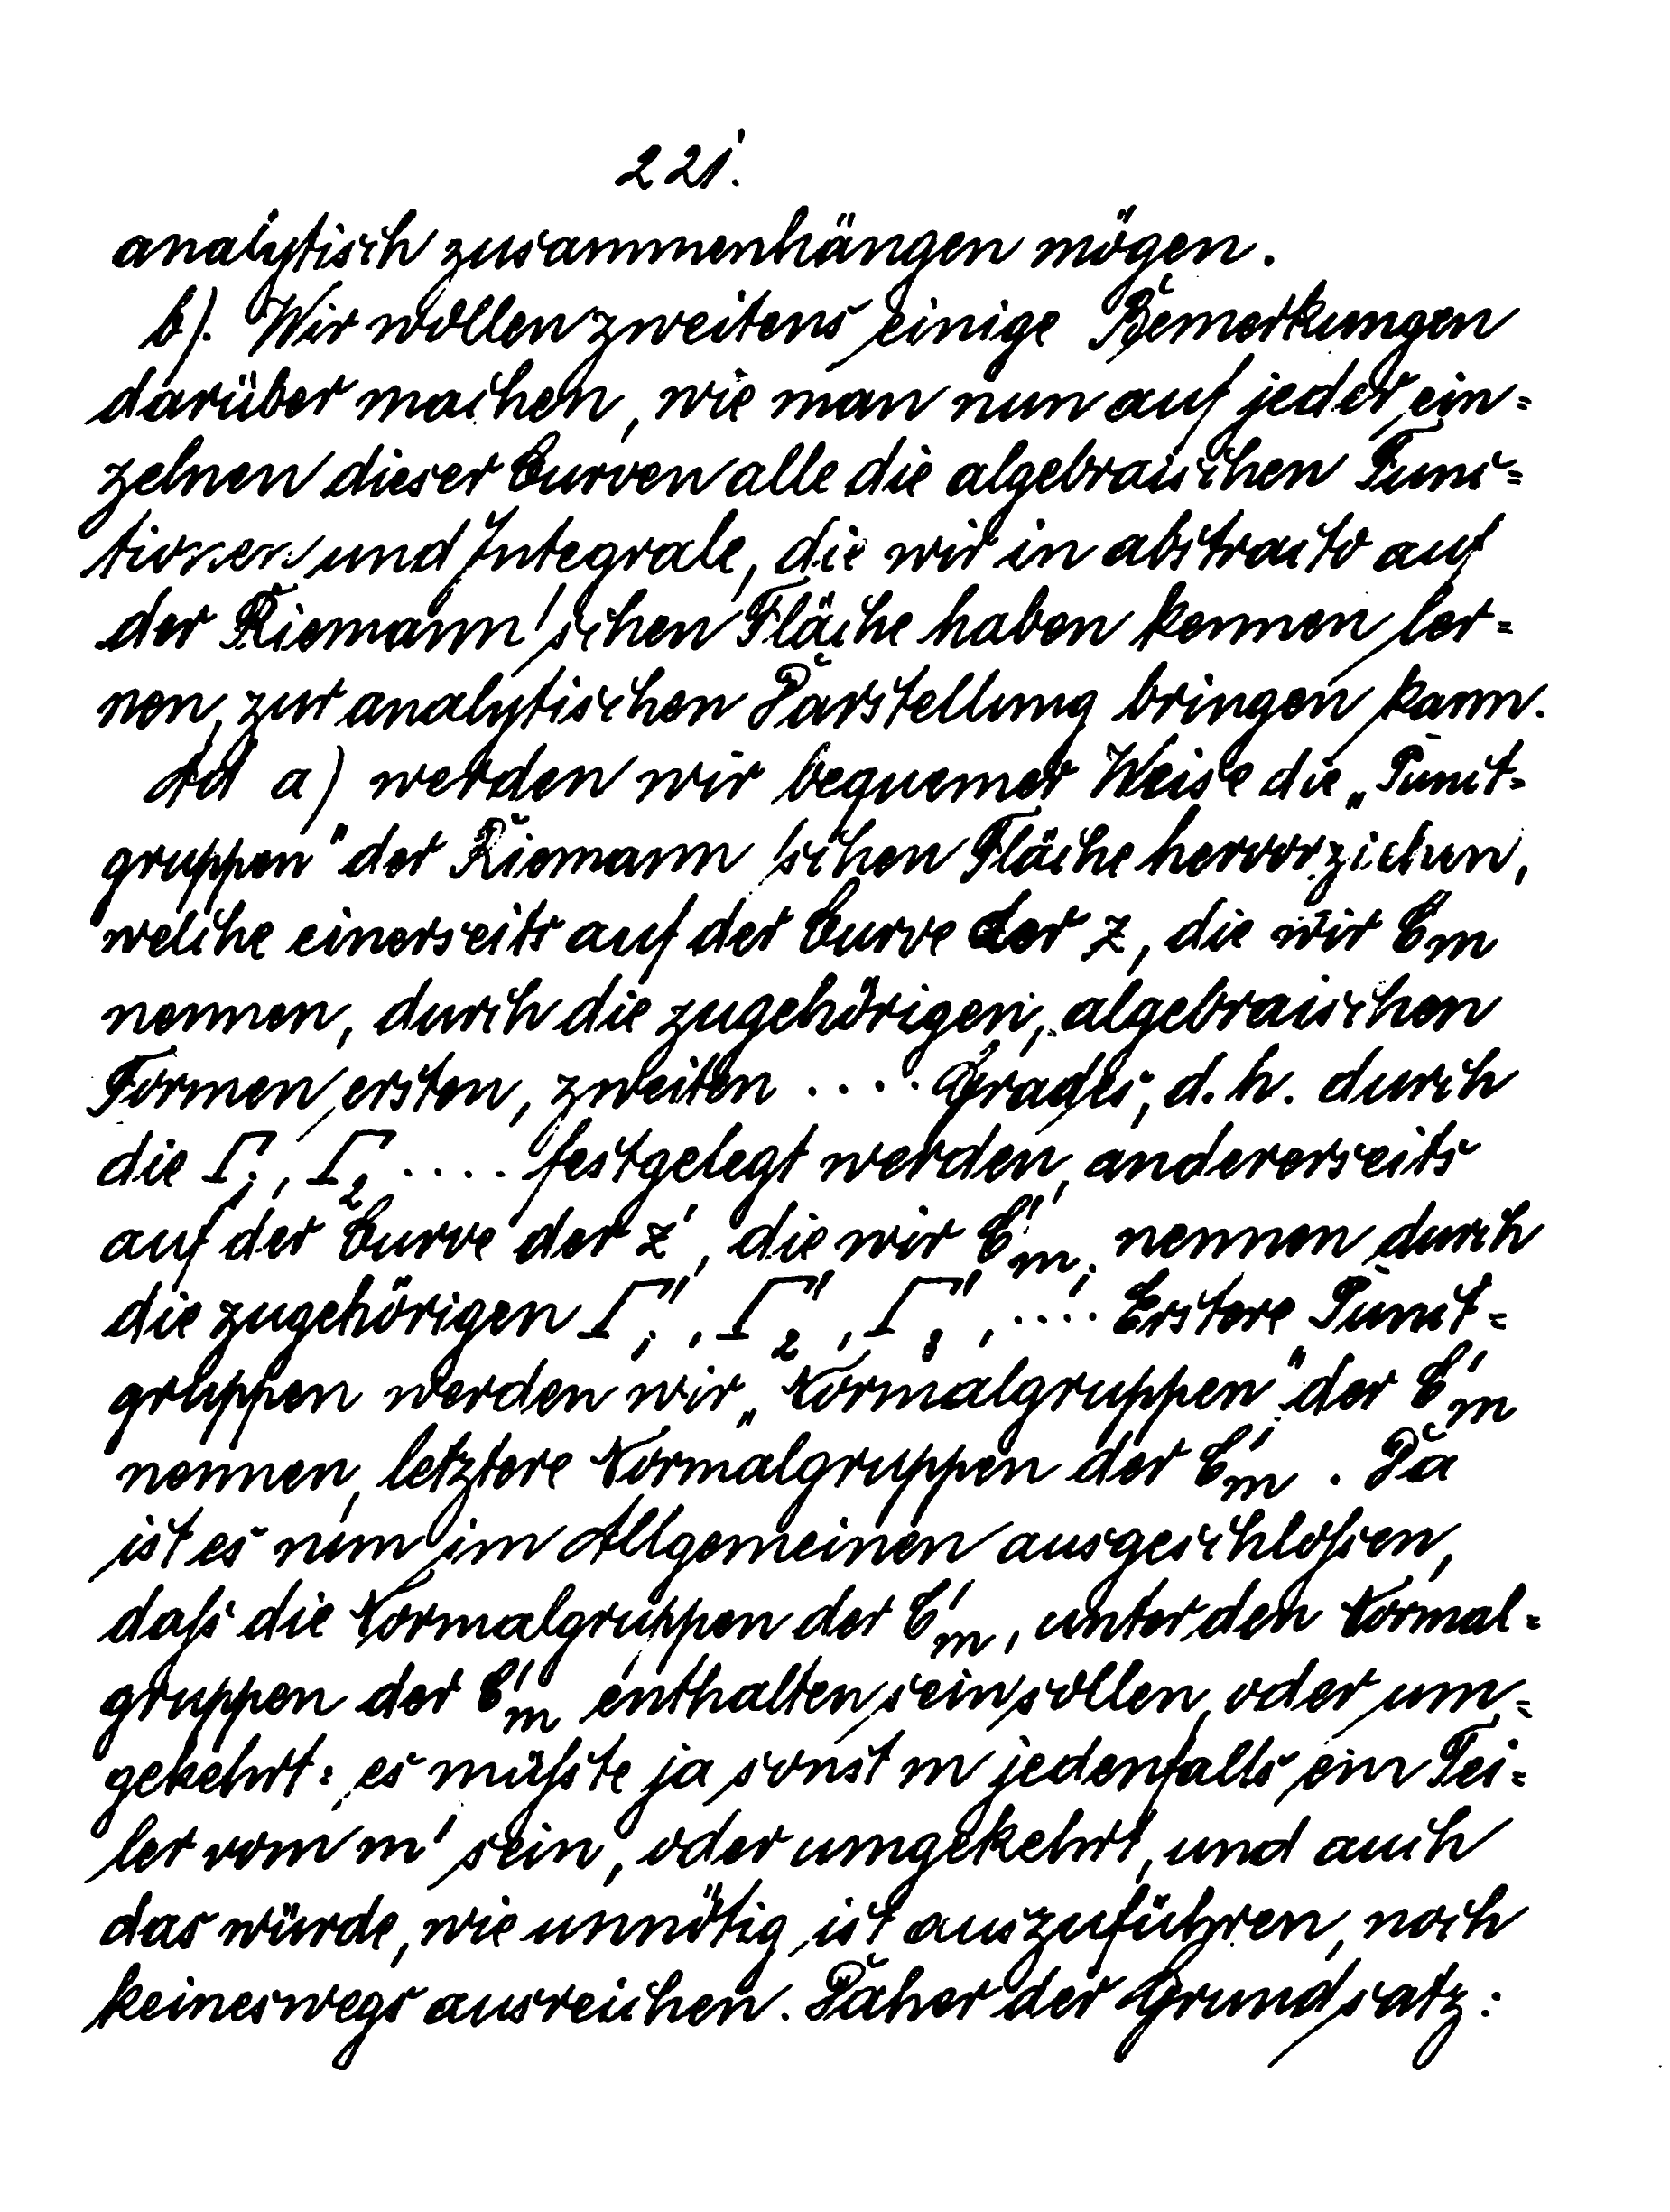 221.
analytisch zusammenhängen mögen.
b). Wir wollen zweitens einige Bemerkungen
darüber machen, wie man nun auf jeder ein=
zelnen dieser Curven alle die algebraischen Func=
tionen und Integrale, die wir in abstracto auf
der Riemann'schen Fläche haben kennen ler=
nen, zur analytischen Darstellung bringen kann.
Ad a) werden wir bequemer Weise die „Punct=
gruppen" der Riemann'schen Fläche hervorziehen,
welche einerseits auf der Curve der z, die wir C_m
nennen, durch die zugehörigen, algebraischen
Formen ersten, zweiten .... Grades, d.h. durch
die Γ_1, Γ_2 .... festgelegt werden, andererseits
auf der Curve der z', die wir C'_m' nennen durch
die zugehörigen Γ'_1, Γ'_2, Γ'_3, .... Erstere Punct=
gruppen werden wir „Normalgruppen" der C'_m
nennen, letztere Normalgruppen der C'_m. Da
ist es nun im Allgemeinen ausgeschlossen,
dass die Normalgruppen der C'_m, unter den Normal=
gruppen der C'_m enthalten sein sollen, oder um=
gekehrt: es müsste ja sonst m jedenfalls ein Tei=
ler vom m' sein, oder umgekehrt, und auch
das würde, wie unnötig ist auszuführen, noch
keineswegs ausreichen. Daher der Grundsatz: